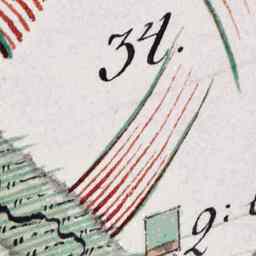 34.
2: